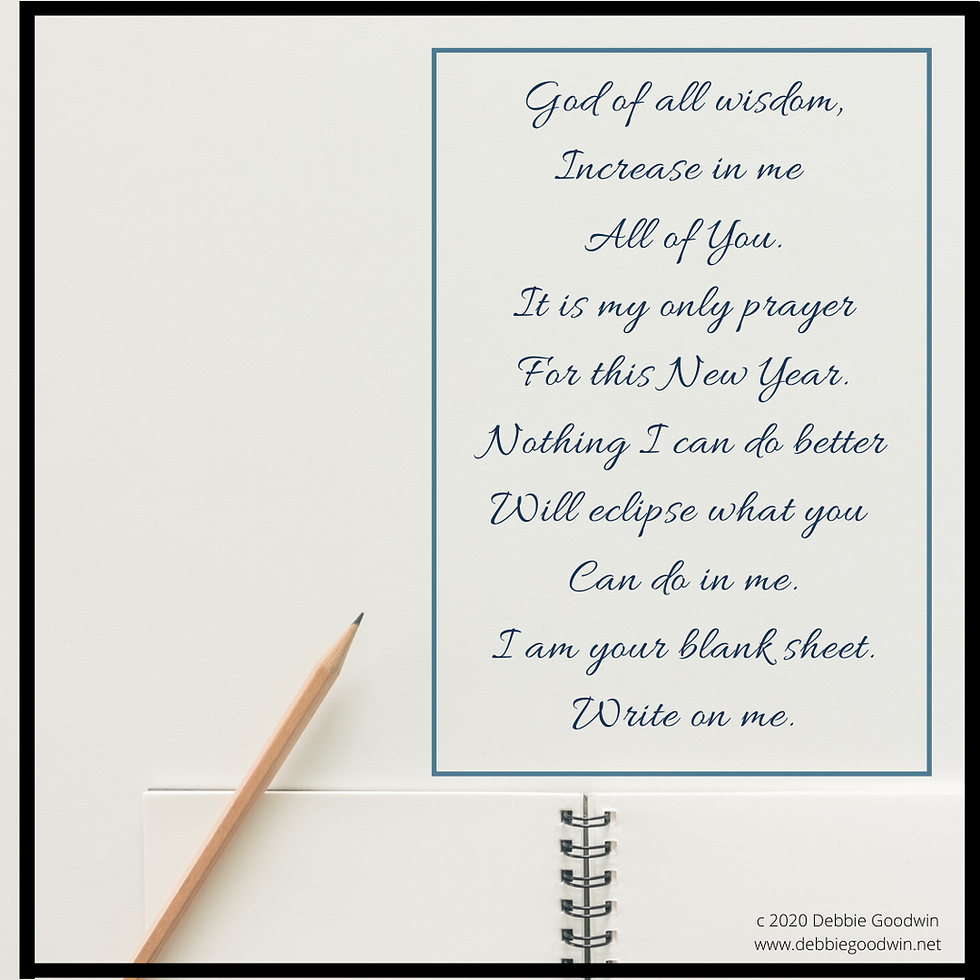 God of all wisdom,
Increase in me
All of You.
It is my only prayer
For this New Year.
Nothing I can do better
Will eclipse what you
Can do in me.
I am your blank sheet.
Write on me.
c 2020 Debbie Goodwin
www.debbiegoodwin.net